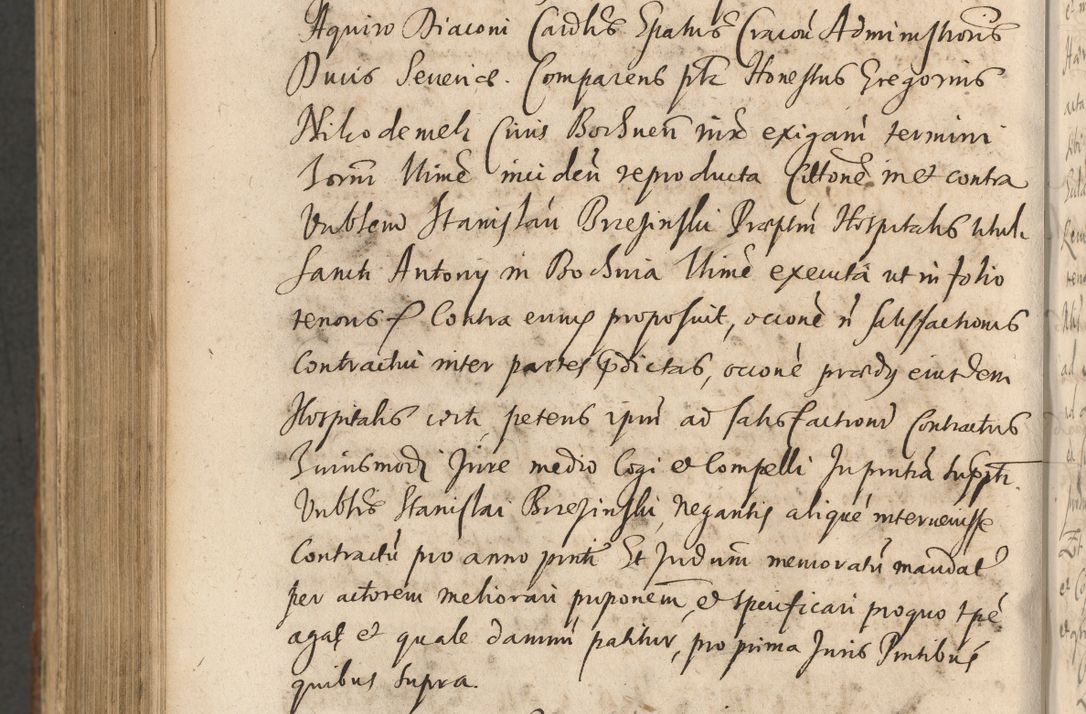 Aquiro Diaconi Cardlis Epatus Cracoū Administoris
Ducis Seueriae. Comparens ptk Honestus Gregorius
Nikodemek Ciuis Bochnen iux exigam termini
horm llime incideñ reproducta Cittone in et contra
Vnblem Stanislaū Brzezinski Praeptm Hospitalis tituli
Sancti Antonij in Bochnia llime executa ut in folio
tenoris Contra eump proposuit, occone ñ satisfactionis
Contractui inter partes pdictas, occone praedij eiusdem
Hospitalis petens ipm ad satisfactionē Contractus
huiusmodi Jure medio Cogi et Compelli In pntia supti.
Vnblis Stanislai Brzezinski, negantis aliquē interuenisse
Contractū pro anno pnti Et Judum memoratū mandat
per actorem meliorari pponem, et specificari pro quo tpe
agat et quale damnū patitur, pro prima Juris Pntibus
quibus supra.